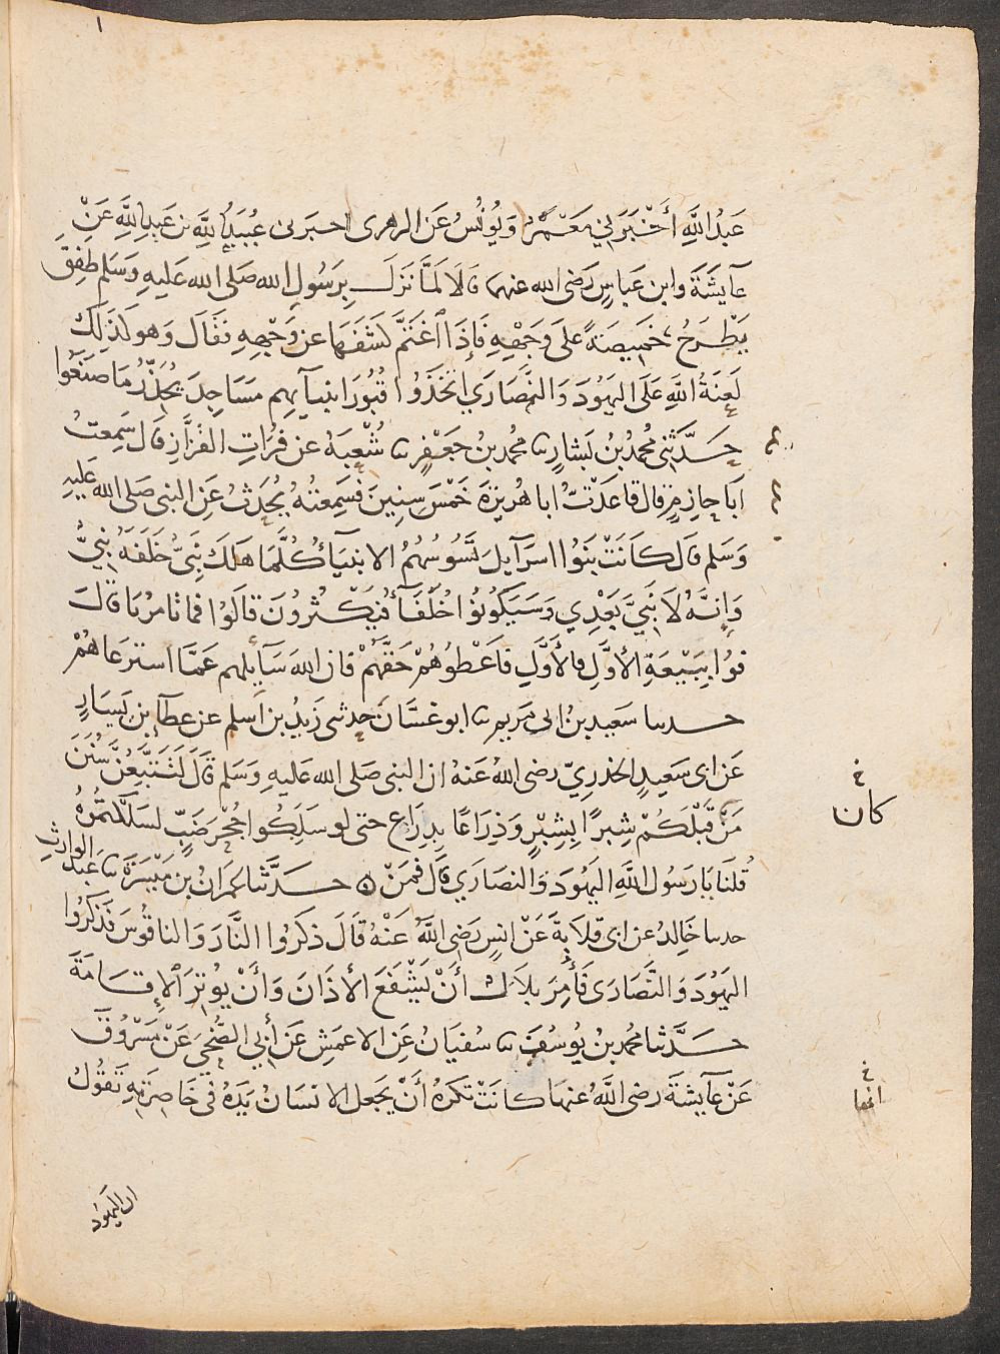 ١
عَبْدُ اللَّهِ أَخْبَرَنِي مَعْمَرٌ وَيُونُسُ عَنِ الزهرى اخبرنى عُبَيْدُ اللَّهِ بن عَبدِ اللَّهِ عَنْ
عَآيِشَةَ وابن عَباسٍ رَضى الله عنهما قَالَا لَمَّا نَزَلَ بِرَسُولِ الله صَلى الله عَليهِ وَسَلم طَفِقَ
يَطْرَحُ خَمِيصَةً عَلَى وَجْهِهِ فَإِذَا اغْتَمَّ كَشَفَهَا عن وَجْهِهِ فَقَالَ وَهو كَذَلِكَ
لَعنَةُ اللَّهِ عَلَى اليَهُودَ وَالنَّصَارَي اتَّخَذُوا قُبُورَ انبيآيهم مَسَاجِدَ يُحَذِّرُ مَا صَنَعُوا
حَدَّثَنِى مُحمدُ بْنُ بَشارٍ ثنا مُحمد بنُ جَعْفَرٍ ثنا شُعْبَةُ عن فُرَاتِ القَزَّازِ قَال سَمِعتُ
اَبَا حازِمٍ قال قاعَدْتُ ابا هُرَيْرَةَ خَمْسَ سِنِينَ فَسَمِعتُهُ يُحَدِثُ عَنِ النبى صَلى الله عَليهِ
وَسَلم قَال كَانَتْ بَنُوا اسرَآيلَ تَسُوسُهُمُ الانبيَآءُ كُلَّمَا هَلَكَ نَبِىٌّ خَلَفَهُ نبىٌّ
وَإِنَّهُ لَا نَبِيَّ بَعْدِي وَسَيَكُونُ خُلَفَآءُ فَيَكْثُرُونَ قالُوا فما تامُرُنا قالَ
فوُا بِبَيْعَةِ الأوَّلِ فالأَوَّلِ فاَعْطُوهُمْ حَقَّهُمْ فان اللهَ سَآيِلهم عَمَّا استرعَاهُمْ
حدثنا سَعِيد بنُ ابى مَريم ثنا ابو غسَّانَ حدثنى زَيدُ بن اَسلم عن عطآء بن يَسَارٍ
عَن ابى سَعِيدٍ الخدريّ رضى اللهُ عَنهُ ان النبى صَلى الله عَليهِ وَسَلم قَالَ لَتَتَّبِعُنَّ سُنَنَ
مَنْ قَبْلَكُمْ شِبرًا بِشِبْرٍ وَذِرَاعًا بِذِرَاعٍ حتى لو سَلَكُوا جُحْرَ ضَبٍّ لسَلَكْتُمُوهُ
قُلنَا يَا رَسُولَ اللَّهِ اليَهُودَ وَالنصَارَي قَال فَمَنْ ۞ حَدَّثنا عمرَانُ بن مَيْسَرَةَ ثنا عَبدُ الوارِثِ
حدثنا خَالِدٌ عن ابى قِلَابةَ عَنْ انسٍ رَضِى اللَّهُ عَنْهُ قَالَ ذكَرُوا النَّارَ وَالناقُوسَ فَذَكَرُوا
اليَهُودَ وَالنَّصَارَى فَأُمِرَ بِلاَلٌ أَنْ يَشْفَعَ الأَذَانَ وَأَنْ يُوتِرَ الإِقَامَةَ
حَدَّثنا مُحمد بنُ يُوسُفَ ثنا سُفيَانُ عَنِ الاعمَشِ عَن أَبِي الضُّحَي عَنْ مَسْرُوقٍ
عَنْ عَآيِشةَ رَضى اللَّهُ عنهَا كانَتْ تكرَهُ أَنْ يَجعَل الانسَانُ يَدَهُ فى خَاصِرَتِهِ تَقُولُ
خ
كان
خ
انها
ان اليهود